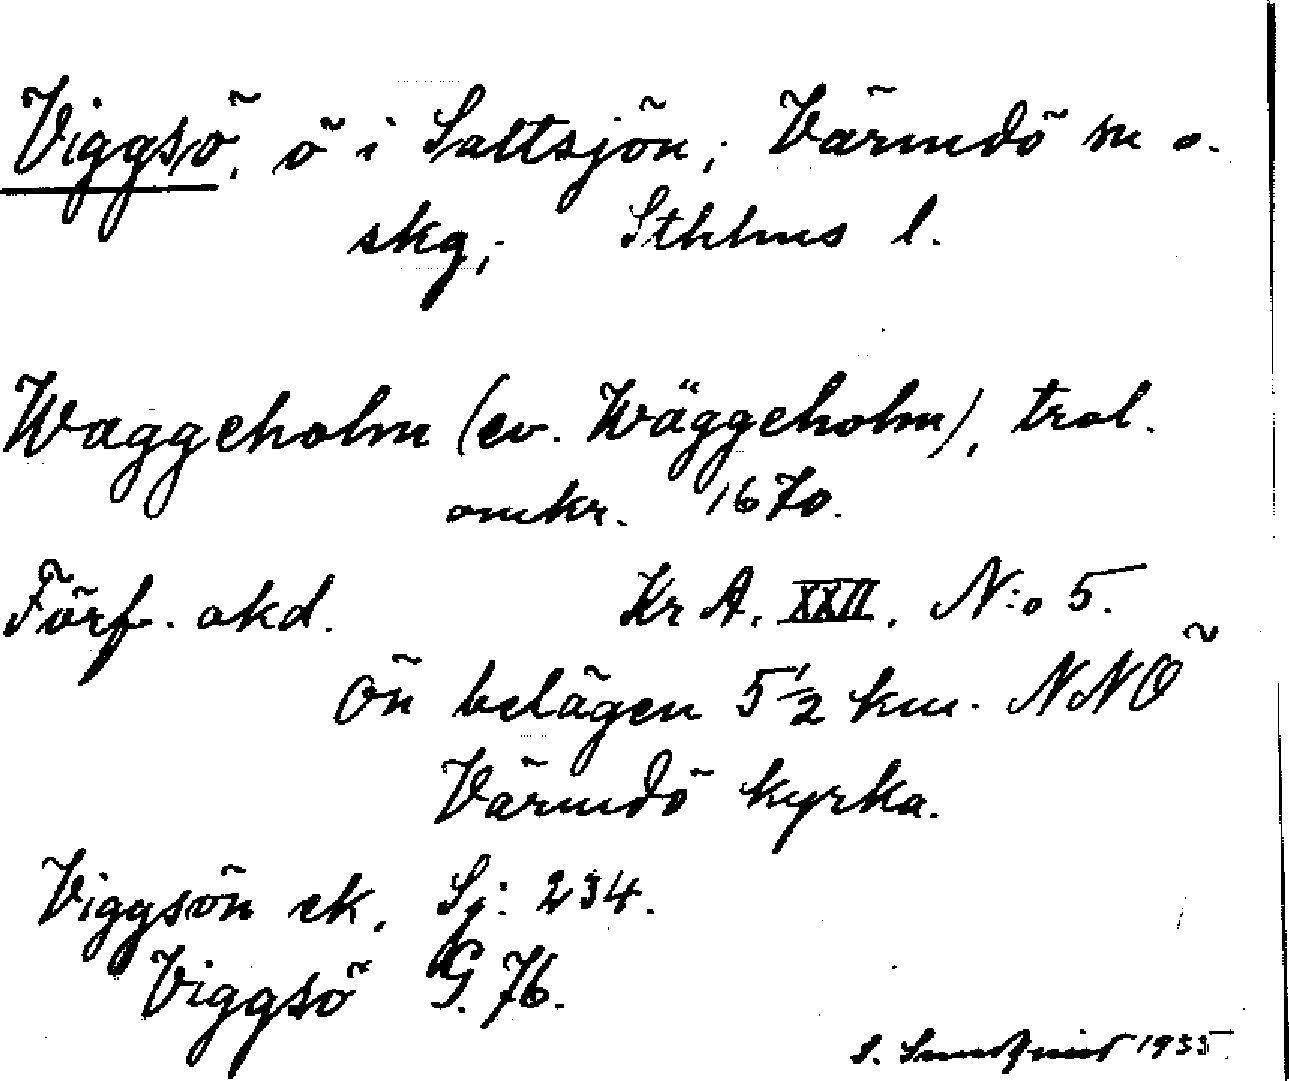 Viggsö, ö i Saltsjön; Värmdö sn o.
skg; Sthlms l.
Waggeholm (ev. Wäggeholm), trol.
omkr. 1670.
Förf. okd. Kr A. XXII. N:o 5.
Ön belägen 5 1/2 km. NNÖ
Värmdö kyrka.
Viggsön ek. Sj: 234.
Viggsö G. 76.
S. 1935